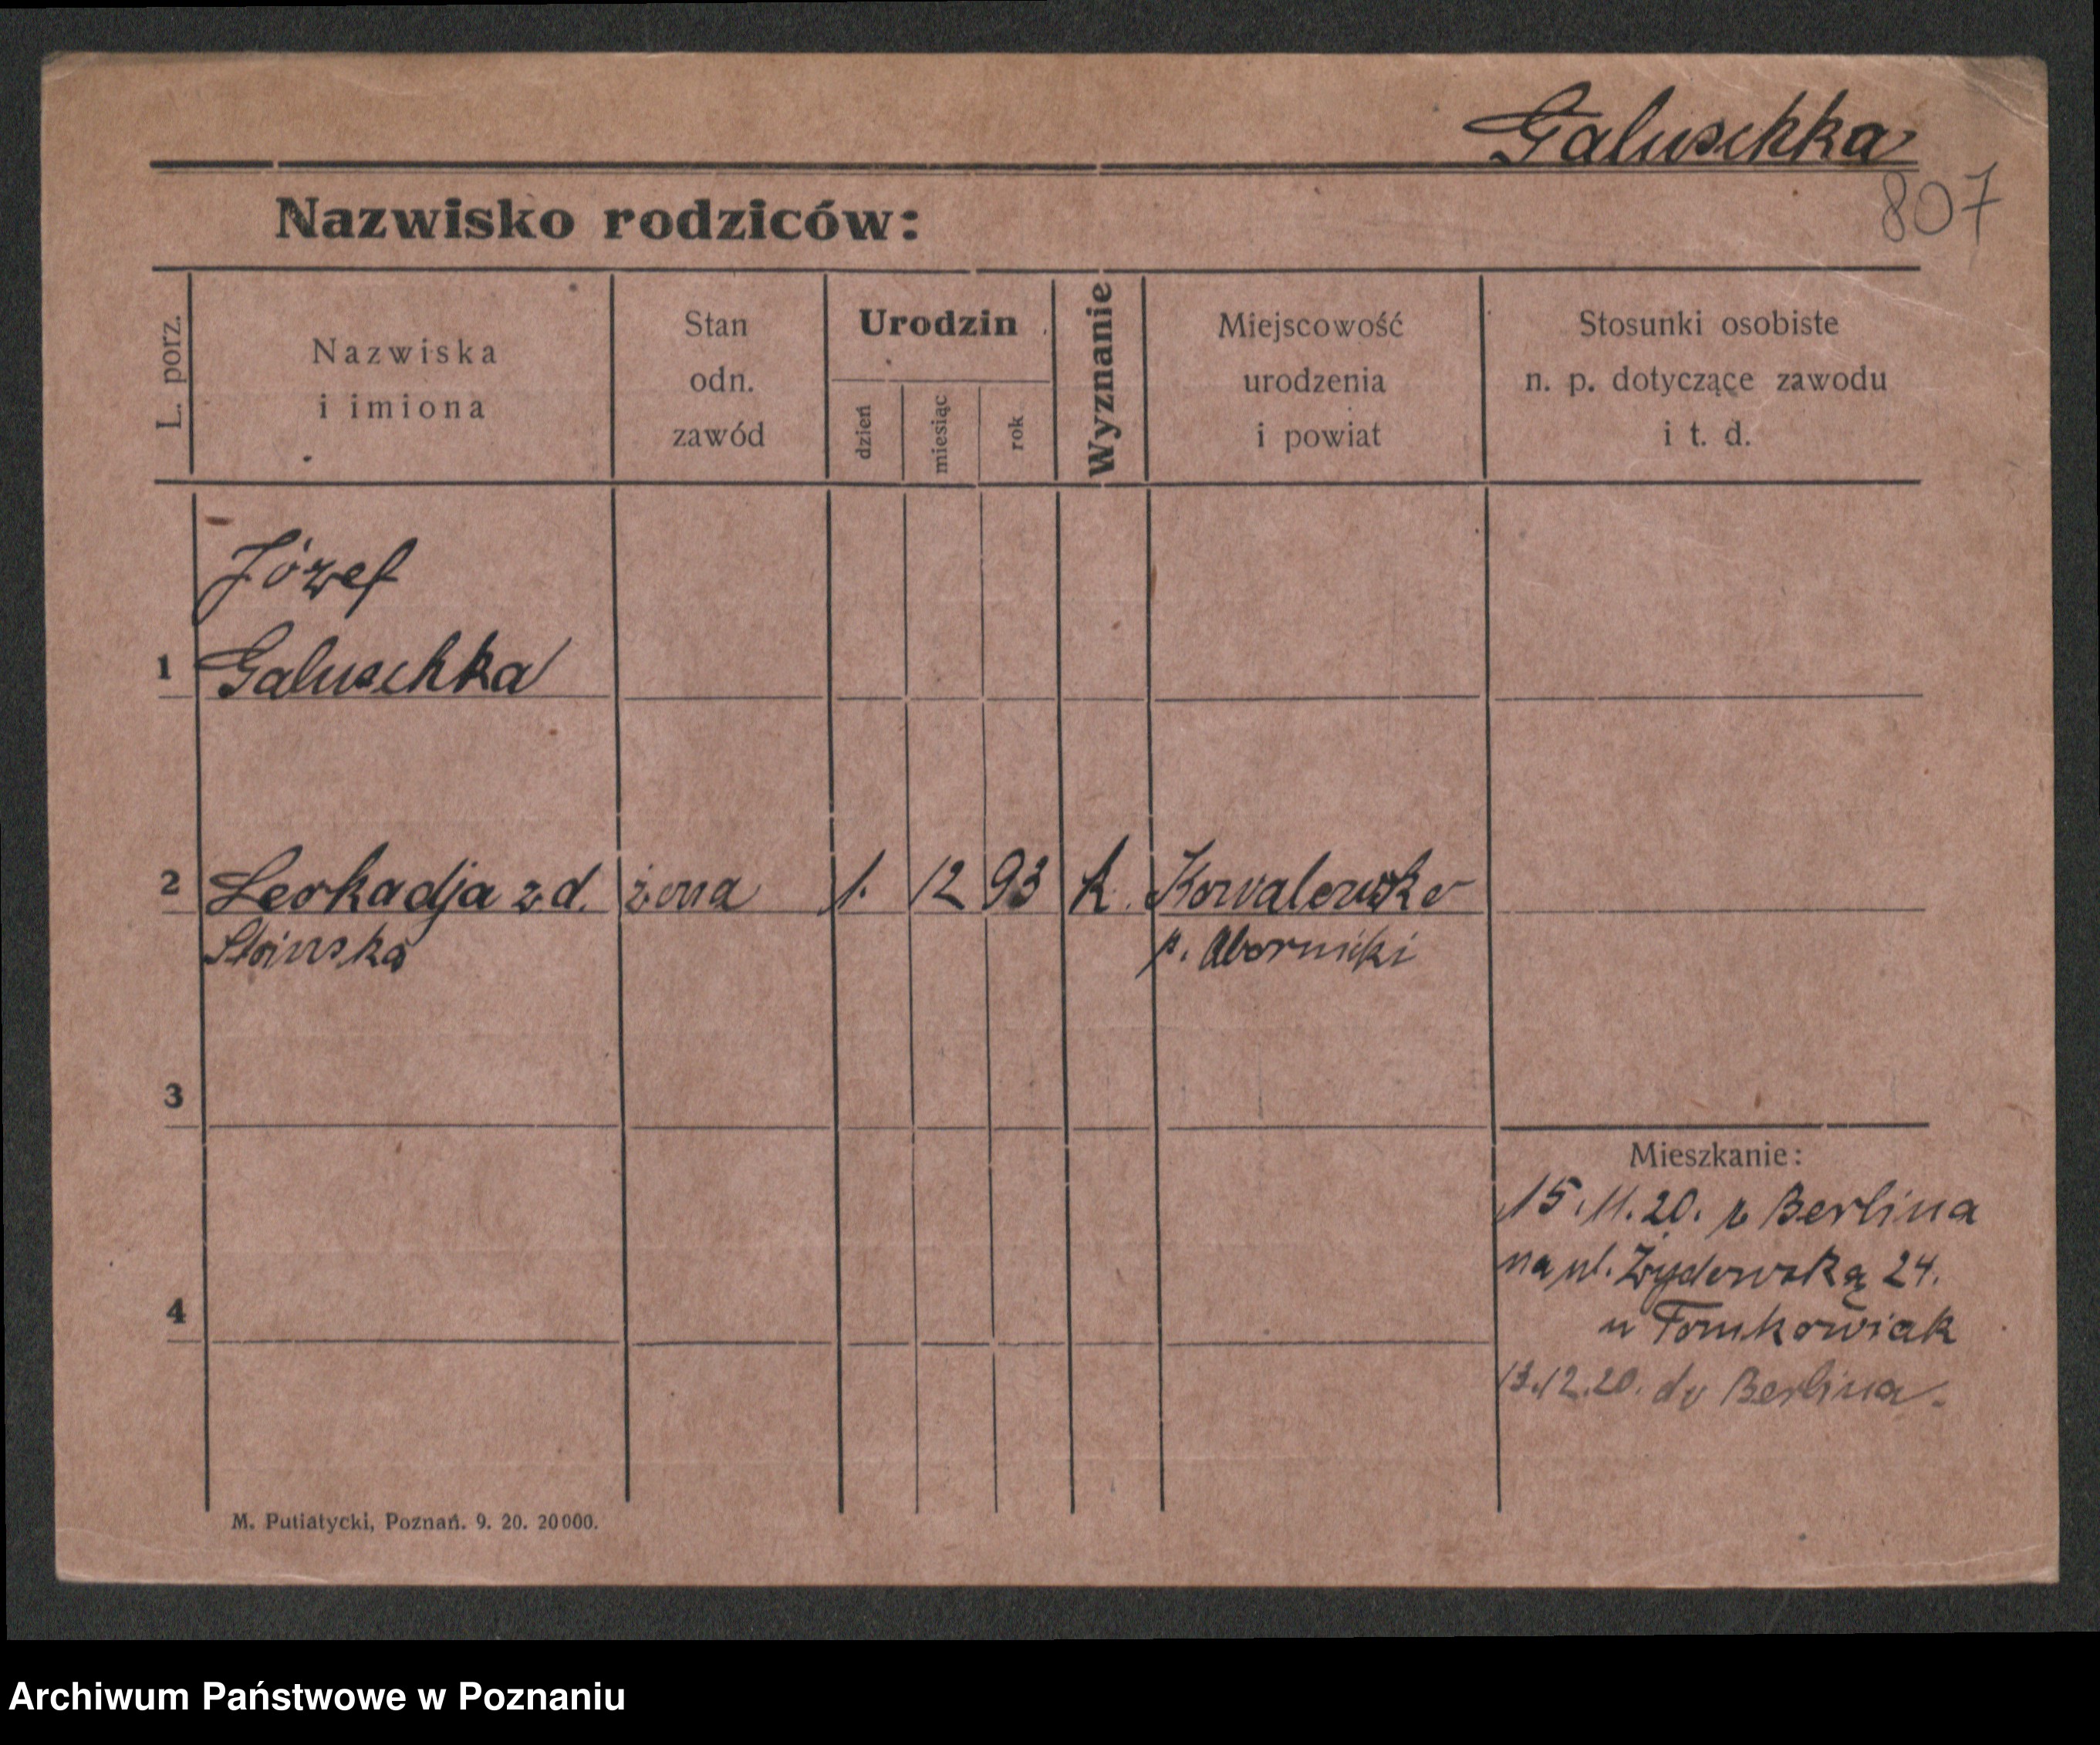 Galuschka
807
Nazwisko rodziców:
L. porz.
Nazwiska
i imiona
Stan
odn.
zawód
Urodzin
dzień
miesiąc
rok
Wyznanie
Miejscowość
urodzenia
i powiat
Stosunki osobiste
n. p. dotyczące zawodu
i t. d.
Józef
1 Galuschka
2 Leokadja z d. żona 1. 12 93 k.
Stoinska p. Obornicki
3
Mieszkanie:
15.11.20. z Berlina
na ul. Żydowską 24.
u Tomkowiak
4
13.12.20. do Berlina.
M. Putiatycki, Poznań. 9. 20. 20000.
Archiwum Państwowe w Poznaniu